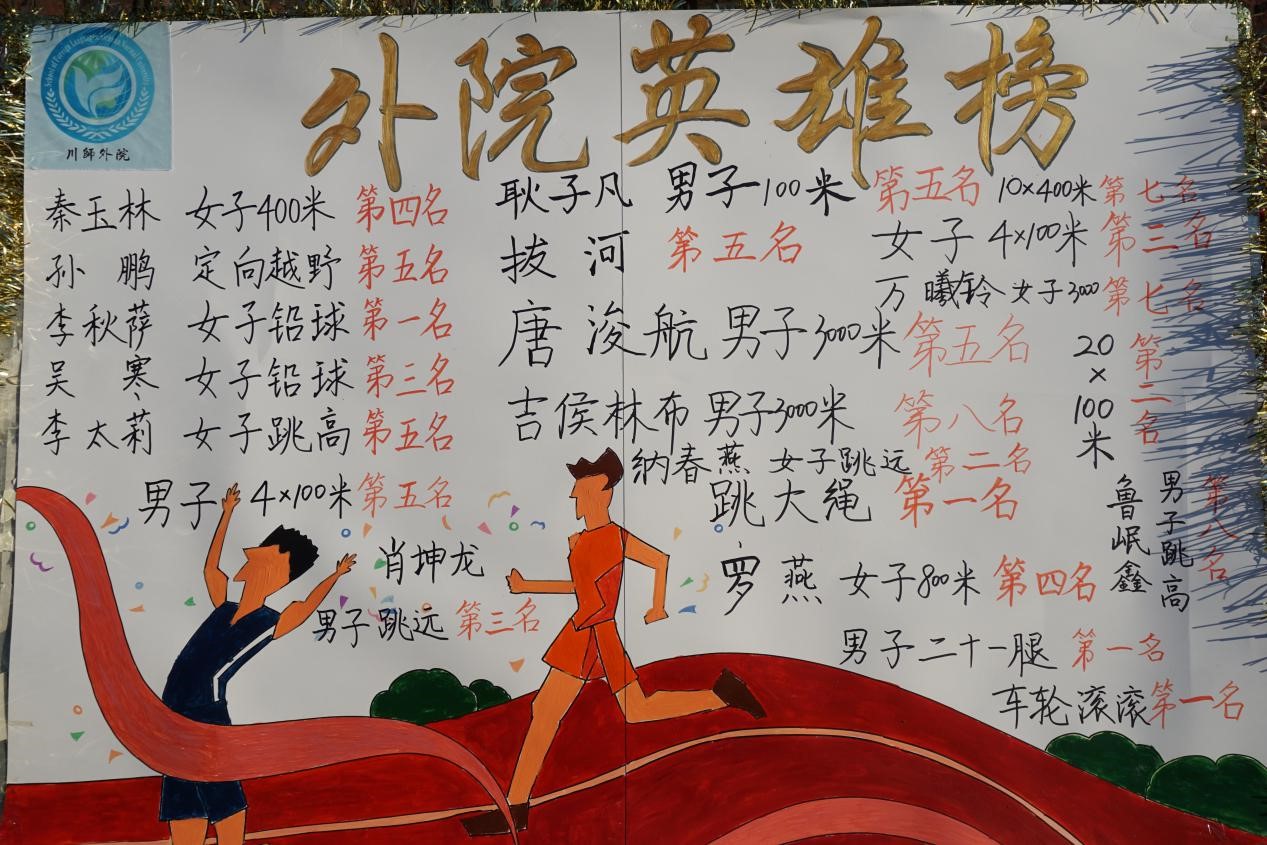 外院英雄榜
川師外院
秦玉林 女子400米 第四名
孙鹏 定向越野 第五名
李秋萍 女子铅球 第一名
吴寒 女子铅球 第三名
李太莉 女子跳高 第五名
男子 4×100米 第五名
肖坤龙
男子跳远 第三名
耿子凡 男子100米 第五名
拔河 第五名
唐浚航 男子3000米 第五名
吉侯林布 男子3000米 第八名
纳春燕 女子跳远 第二名
跳大绳 第一名
罗燕 女子800米 第四名
男子二十一腿 第一名
车轮滚滚 第一名
10×400米 第七名
女子 4×100米 第三名
万曦铃 女子3000 第七名
20×100米 第二名
鲁岷鑫 男子跳高 第八名